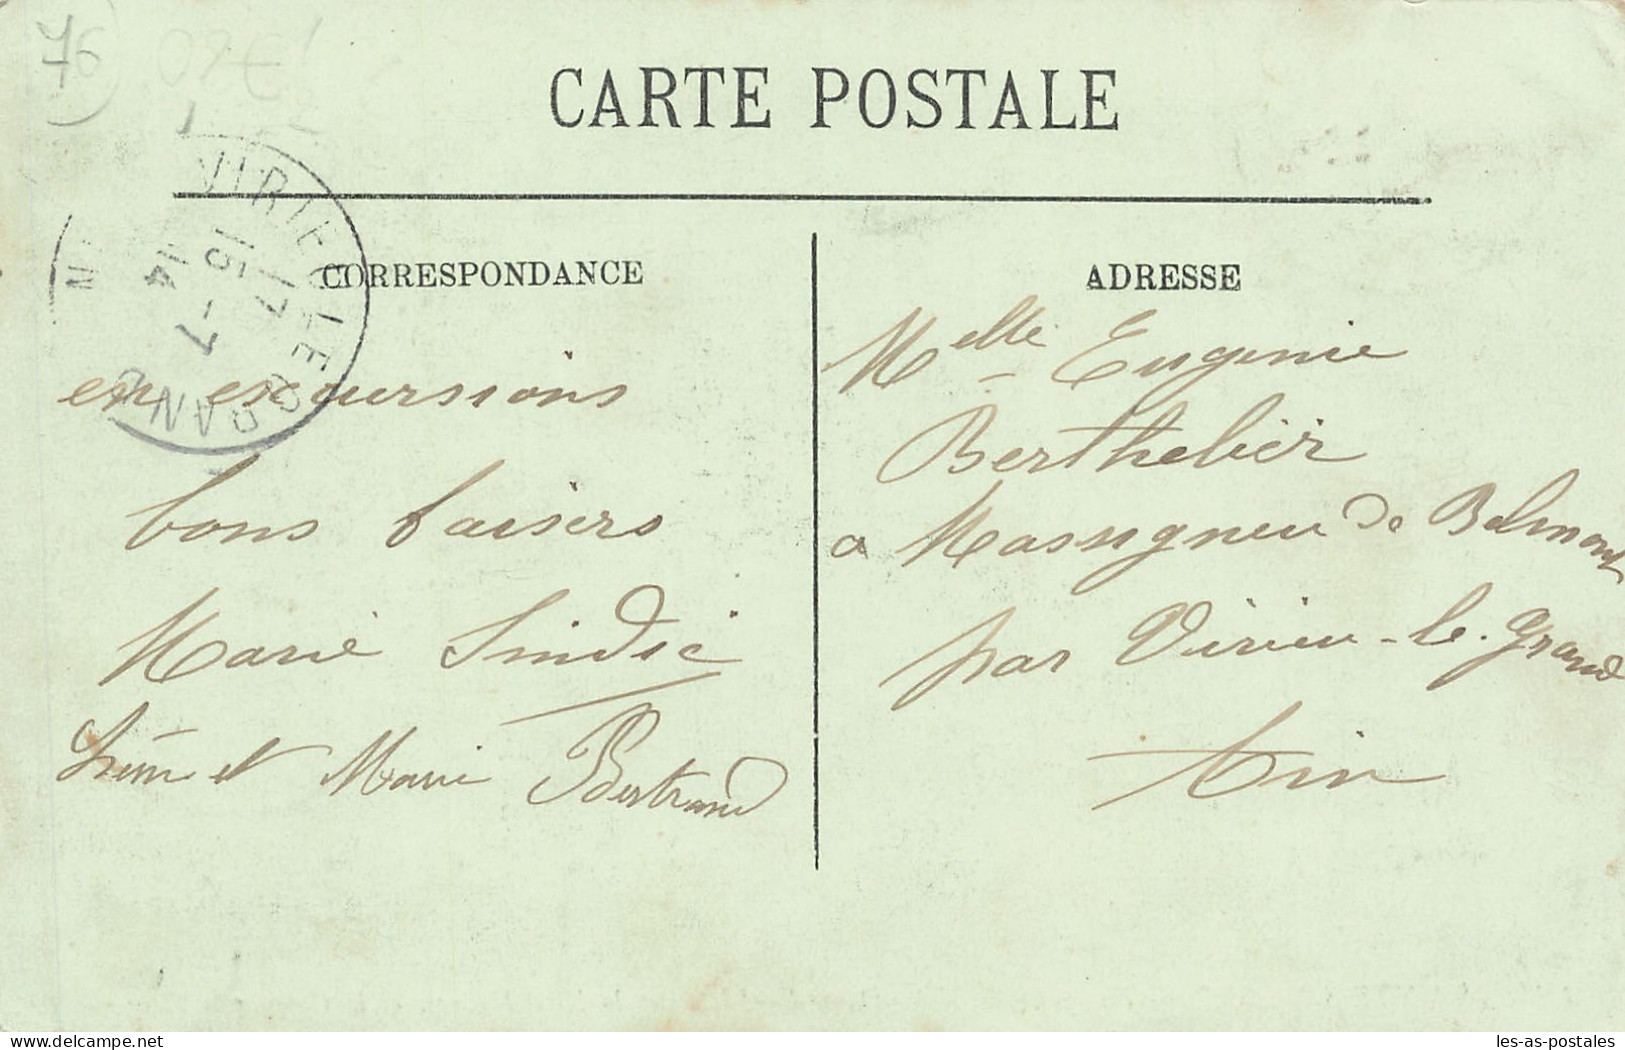 76
02€
CARTE POSTALE
VIRIEU LE GRAND
15 17
-7
14
CORRESPONDANCE
en excursions
bons baisers
Marie Sindic
et Marie Bertrand
ADRESSE
Melle Eugenie
Berthelier
a Massigneu de Belmont
par Virieu-le-Grand
Ain
delcampe.net
les-as-postales